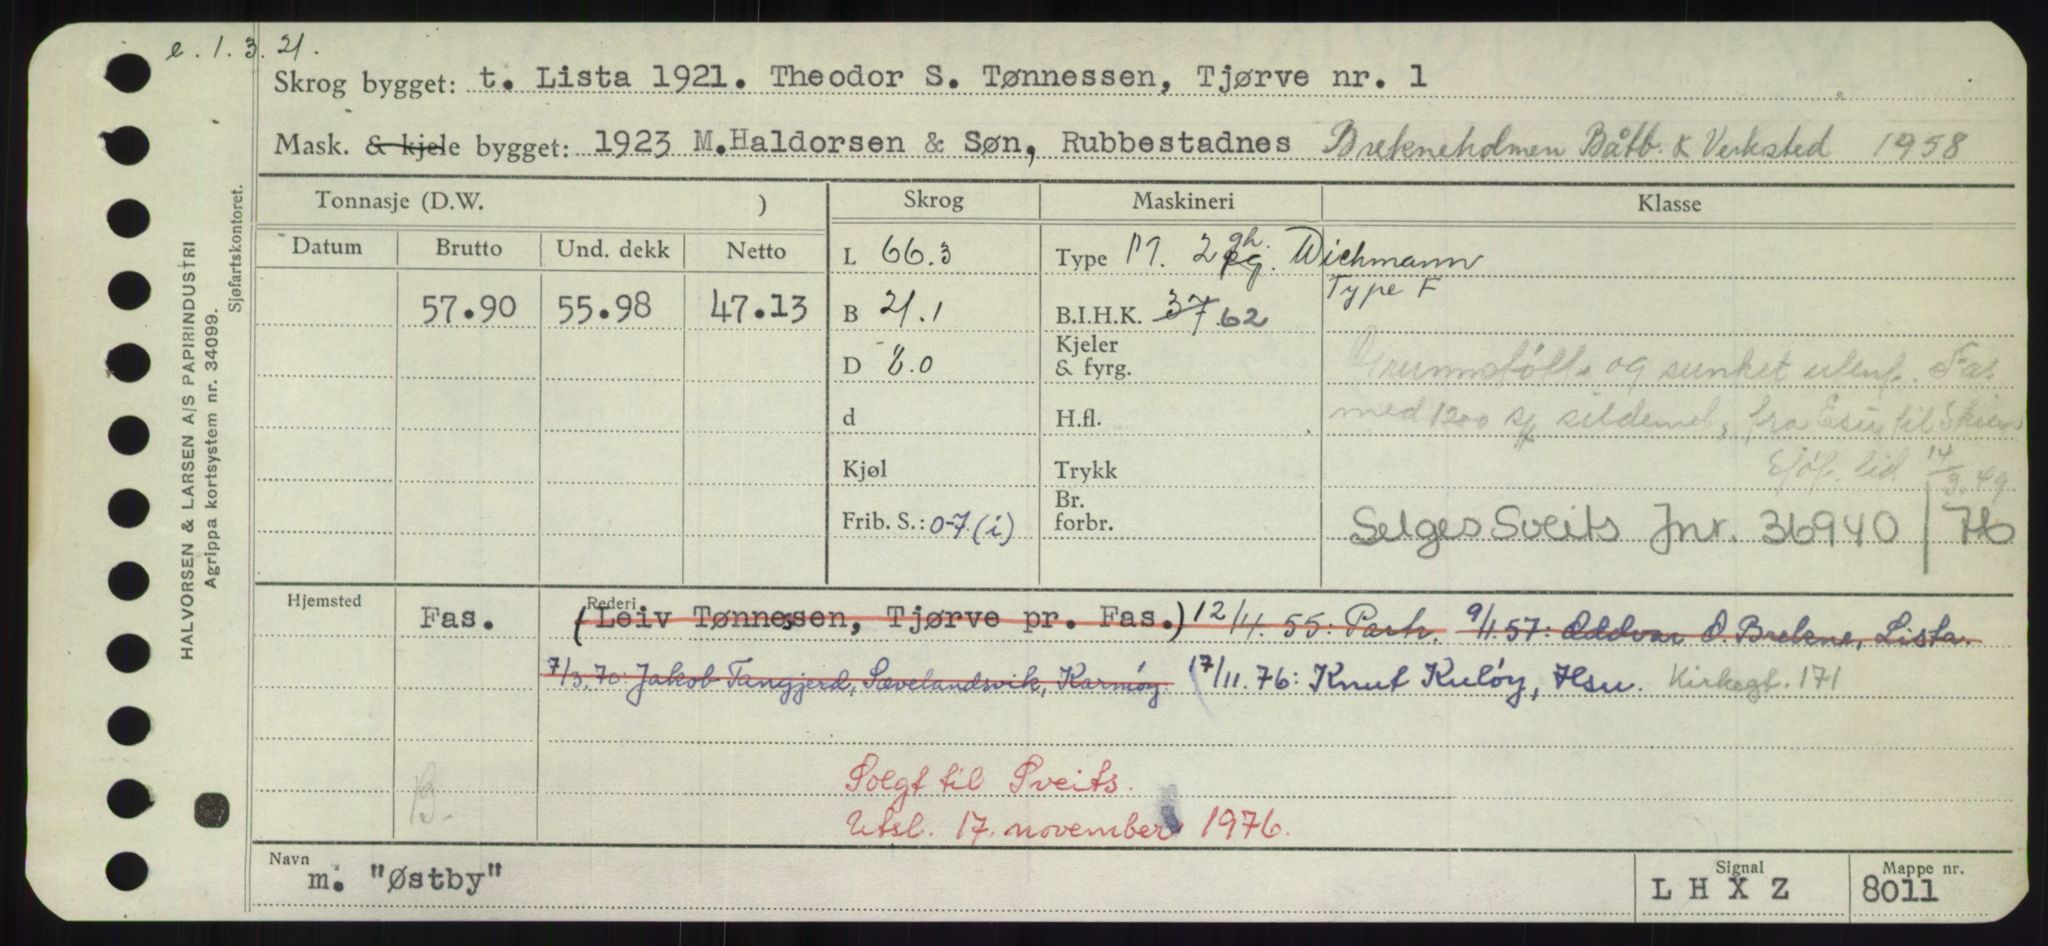 e. 1. 3. 21.
Skrog bygget: t. Lista 1921. Theodor S. Tønnessen, Tjørve nr. 1
Mask. & kjele bygget: 1923 M.Haldorsen & Søn, Rubbestadnes Brekneholmen Båtb. & Verksted 1958
Tonnasje (D.W. ) Skrog Maskineri Klasse
Datum Brutto Und. dekk Netto L 66.3 Type M. 2 gh. Wichmann
Type F
57.90 55.98 47.13 B 21.1 B.I.H.K. 37 62
Kjeler
D 8.0 & fyrg.
og sunket utenf. Fas
d H.fl. med 1200 sk sildemel, fra til Skien
Kjøl Trykk Sjøf. tid. 14/3.49
Br.
Frib. S.: 0-7 (i) forbr. Selges Sveits Jnr. 36940/76
Hjemsted Rederi
Fas. (Leiv Tønnessen, Tjørve pr. Fas.) 12/4.55: Part. 9/1.57: Oddvar O. Brekne, Lista.
7/3.70: Jakob Tangjerd, Sævelandsvik, Karmøy 17/11.76: Knut Kuløy, Hsu. Kirkegt. 171
B. Solgt til Sveits.
Utsl. 17. november 1976.
Navn Signal Mappe nr.
m. "Østby" L H X Z 8011
HALVORSEN & LARSEN A/S PAPIRINDUSTRI
Agrippa kortsystem nr. 34099.
Sjøfartskontoret.